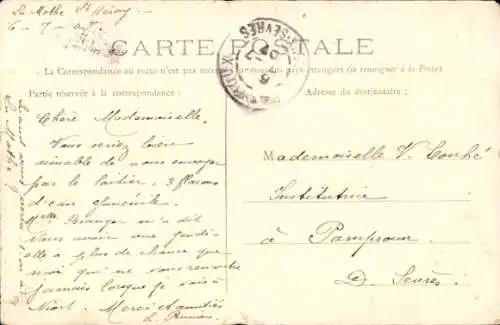 La Mothe St Héray
6 - 7 - 07
CARTE POSTALE
La Correspondance au recto n'est pas acceptée par tous les pays étrangers (se renseigner à la Poste)
Partie réservée à la correspondance :
Adresse du destinataire :
Chère Mademoiselle,
Vous seriez bien
aimable de nous envoyer
par le laitier, 3 flacons
d'eau
Melle Béranger m'a dit
vous avoir vue jeudi
elle a plus de chance que
moi qui ne vous rencontre
jamais lorsque je vais à
Niort. Merci Amitiés
Mademoiselle V. Couhé
Institutrice
à Pamproux
D. Sèvres